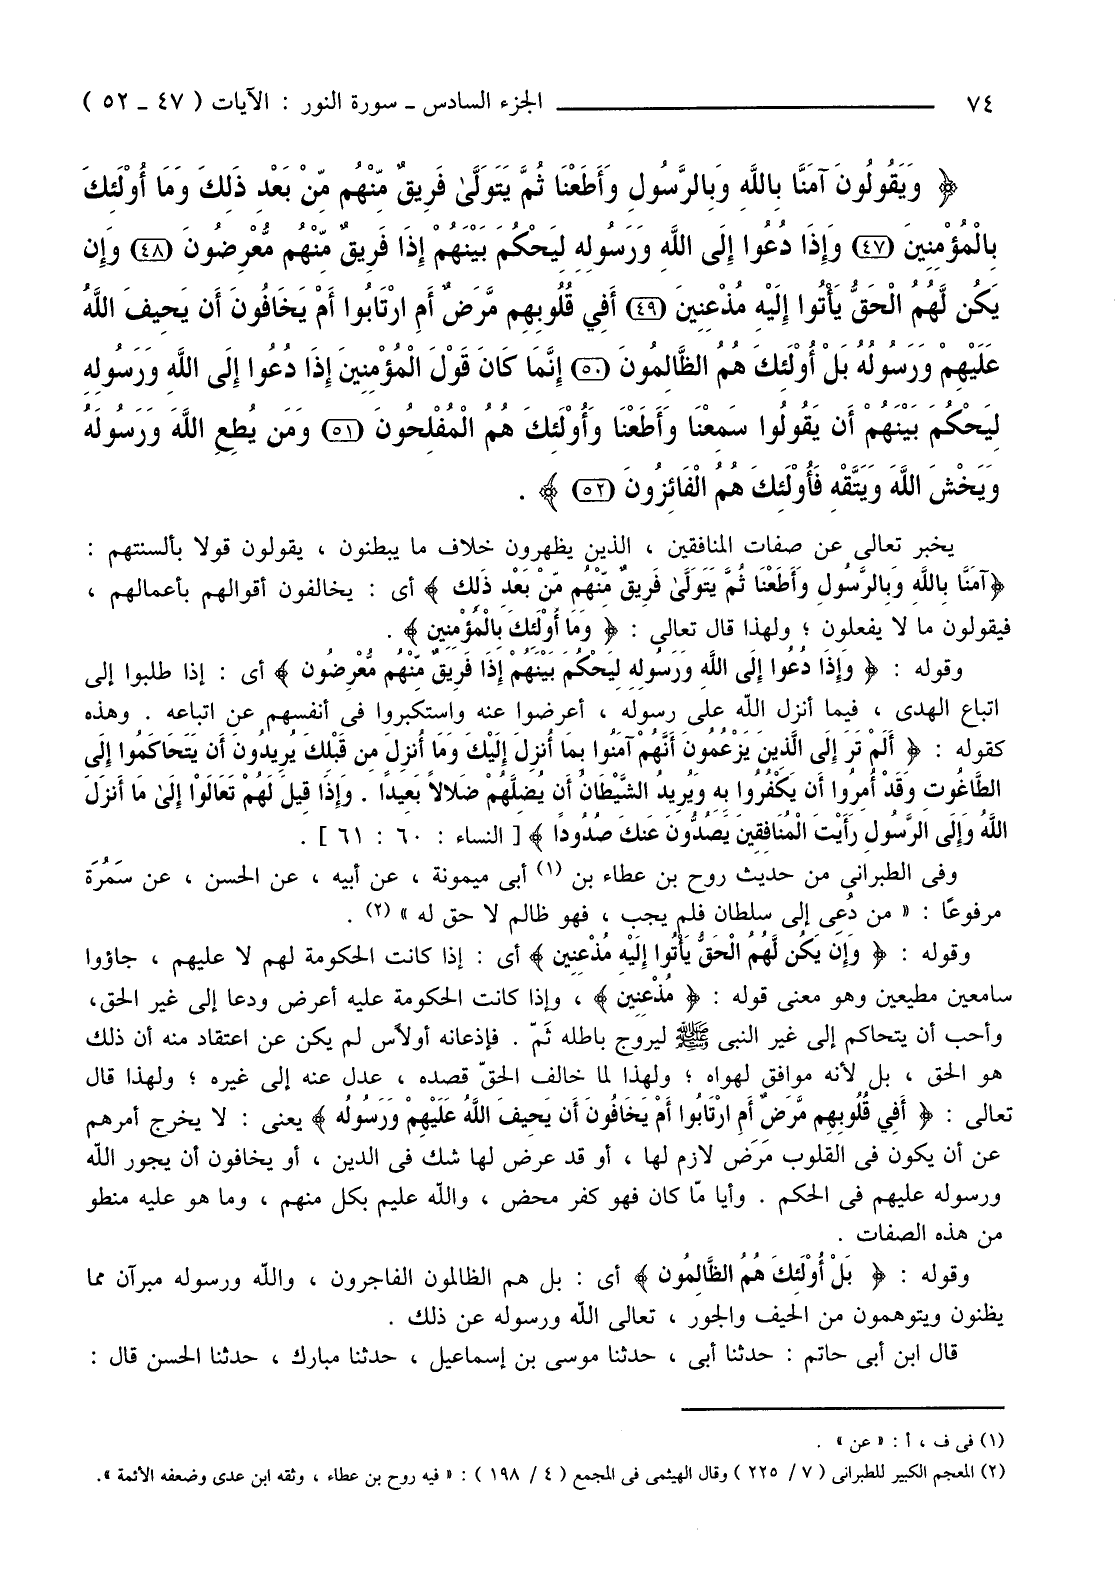 ٧٤ ــــــــــ الجزء السادس ـ سورة النور : الآيات ( ٤٧ ـ ٥٢ )
﴿ وَيَقُولُونَ آمَنَّا بِاللَّهِ وَبِالرَّسُولِ وَأَطَعْنَا ثُمَّ يَتَوَلَّىٰ فَرِيقٌ مِّنْهُم مِّنْ بَعْدِ ذَلِكَ وَمَا أُوْلَئِكَ
بِالْمُؤْمِنِينَ (٤٧) وَإِذَا دُعُوا إِلَى اللَّهِ وَرَسُولِهِ لِيَحْكُمَ بَيْنَهُمْ إِذَا فَرِيقٌ مِّنْهُم مُّعْرِضُونَ (٤٨) وَإِن
يَكُن لَّهُمُ الْحَقُّ يَأْتُوا إِلَيْهِ مُذْعِنِينَ (٤٩) أَفِي قُلُوبِهِم مَّرَضٌ أَمِ ارْتَابُوا أَمْ يَخَافُونَ أَن يَحِيفَ اللَّهُ
عَلَيْهِمْ وَرَسُولُهُ بَلْ أُوْلَئِكَ هُمُ الظَّالِمُونَ (٥٠) إِنَّمَا كَانَ قَوْلَ الْمُؤْمِنِينَ إِذَا دُعُوا إِلَى اللَّهِ وَرَسُولِهِ
لِيَحْكُمَ بَيْنَهُمْ أَن يَقُولُوا سَمِعْنَا وَأَطَعْنَا وَأُوْلَئِكَ هُمُ الْمُفْلِحُونَ (٥١) وَمَن يُطِعِ اللَّهَ وَرَسُولَهُ
وَيَخْشَ اللَّهَ وَيَتَّقْهِ فَأُوْلَئِكَ هُمُ الْفَائِزُونَ (٥٢) ﴾ .
يخبر تعالى عن صفات المنافقين ، الذين يظهرون خلاف ما يبطنون ، يقولون قولا بألسنتهم :
﴿آمَنَّا بِاللَّهِ وَبِالرَّسُولِ وَأَطَعْنَا ثُمَّ يَتَوَلَّىٰ فَرِيقٌ مِّنْهُم مِّنْ بَعْدِ ذَلِك ﴾ أى : يخالفون أقوالهم بأعمالهم ،
فيقولون ما لا يفعلون ؛ ولهذا قال تعالى : ﴿ وَمَا أُوْلَئِكَ بِالْمُؤْمِنِين ﴾ .
وقوله : ﴿ وَإِذَا دُعُوا إِلَى اللَّهِ وَرَسُولِهِ لِيَحْكُمَ بَيْنَهُمْ إِذَا فَرِيقٌ مِّنْهُم مُّعْرِضُون ﴾ أى : إذا طلبوا إلى
اتباع الهدى ، فيما أنزل اللّه على رسوله ، أعرضوا عنه واستكبروا فى أنفسهم عن اتباعه . وهذه
كقوله : ﴿ أَلَمْ تَرَ إِلَى الَّذِينَ يَزْعُمُونَ أَنَّهُمْ آمَنُوا بِمَا أُنزِلَ إِلَيْكَ وَمَا أُنزِلَ مِن قَبْلِكَ يُرِيدُونَ أَن يَتَحَاكَمُوا إِلَى
الطَّاغُوتِ وَقَدْ أُمِرُوا أَن يَكْفُرُوا بِهِ وَيُرِيدُ الشَّيْطَانُ أَن يُضِلَّهُمْ ضَلالاً بَعِيدًا . وَإِذَا قِيلَ لَهُمْ تَعَالَوْا إِلَىٰ مَا أَنزَلَ
اللَّهُ وَإِلَى الرَّسُولِ رَأَيْتَ الْمُنَافِقِينَ يَصُدُّونَ عَنكَ صُدُودًا ﴾ [ النساء : ٦٠ : ٦١ ] .
وفى الطبراني من حديث روح بن عطاء بن (١) أبى ميمونة ، عن أبيه ، عن الحسن ، عن سَمُرَة
مرفوعًا : « من دُعِى إلى سلطان فلم يجب ، فهو ظالم لا حق له » (٢) .
وقوله : ﴿ وَإِن يَكُن لَّهُمُ الْحَقُّ يَأْتُوا إِلَيْهِ مُذْعِنِين ﴾ أى : إذا كانت الحكومة لهم لا عليهم ، جاؤوا
سامعين مطيعين وهو معنى قوله : ﴿ مُذْعِنِين ﴾ ، وإذا كانت الحكومة عليه أعرض ودعا إلى غير الحق،
وأحب أن يتحاكم إلى غير النبى ﷺ ليروج باطله ثَمّ . فإذعانه أولاً لم يكن عن اعتقاد منه أن ذلك
هو الحق ، بل لأنه موافق لهواه ؛ ولهذا لما خالف الحقّ قصده ، عدل عنه إلى غيره ؛ ولهذا قال
تعالى : ﴿ أَفِي قُلُوبِهِم مَّرَضٌ أَمِ ارْتَابُوا أَمْ يَخَافُونَ أَن يَحِيفَ اللَّهُ عَلَيْهِمْ وَرَسُولُه ﴾ يعنى : لا يخرج أمرهم
عن أن يكون فى القلوب مَرَض لازم لها ، أو قد عرض لها شك فى الدين ، أو يخافون أن يجور اللّه
ورسوله عليهم فى الحكم . وأيا مّا كان فهو كفر محض ، واللّه عليم بكل منهم ، وما هو عليه منطو
من هذه الصفات .
وقوله : ﴿ بَلْ أُوْلَئِكَ هُمُ الظَّالِمُون ﴾ أى : بل هم الظالمون الفاجرون ، واللّه ورسوله مبرآن مما
يظنون ويتوهمون من الحيف والجور ، تعالى اللّه ورسوله عن ذلك .
قال ابن أبى حاتم : حدثنا أبى ، حدثنا موسى بن إسماعيل ، حدثنا مبارك ، حدثنا الحسن قال :
(١) فى ف ، أ : « عن » .
(٢) المعجم الكبير للطبرانى ( ٧ / ٢٢٥ ) وقال الهيثمى فى المجمع ( ٤ / ١٩٨ ) : « فيه روح بن عطاء ، وثقه ابن عدى وضعفه الأئمة ».